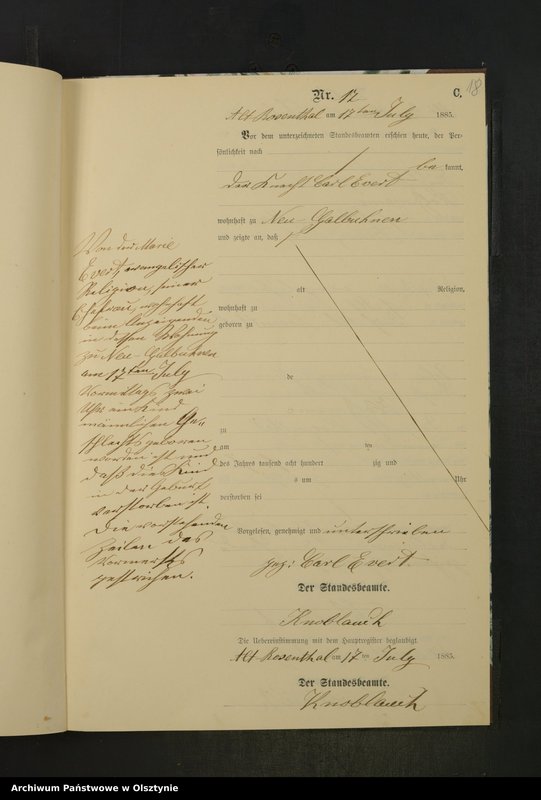 Nr. 12
C.
18
Alt Rosenthal am 17ten July 1885.
Vor dem unterzeichneten Standesbeamten erschien heute, der Per-
sönlichkeit nach
be kannt,
der Knecht Carl Evert
wohnhaft zu Neu-Galbuhnen
und zeigte an, daß
alt Religion,
wohnhaft zu
geboren zu
de
zu
am ten
des Jahres tausend acht hundert zig und
s um Uhr
verstorben sei
Von der Marie
Evert, evangelischer
Religion, seiner
Ehefrau, wohnhaft
beim Anzeigenden
in dessen Wohnung
zu Neu-Galbuhnen
am 17ten July
Vormittags zwei
Uhr ein Kind
männlichen Ge-
schlechts geboren
worden ist und
daß die Kind
in der Geburt
verstorben ist.
Die vorstehenden
Zeilen des
Vormerks
gestrichen.
Vorgelesen, genehmigt und unterschrieben
gez: Carl Evert
Der Standesbeamte.
Knoblauch
Die Uebereinstimmung mit dem Hauptregister beglaubigt
Alt Rosenthal am 17 ten July 1885.
Der Standesbeamte.
Knoblauch
Archiwum Państwowe w Olsztynie